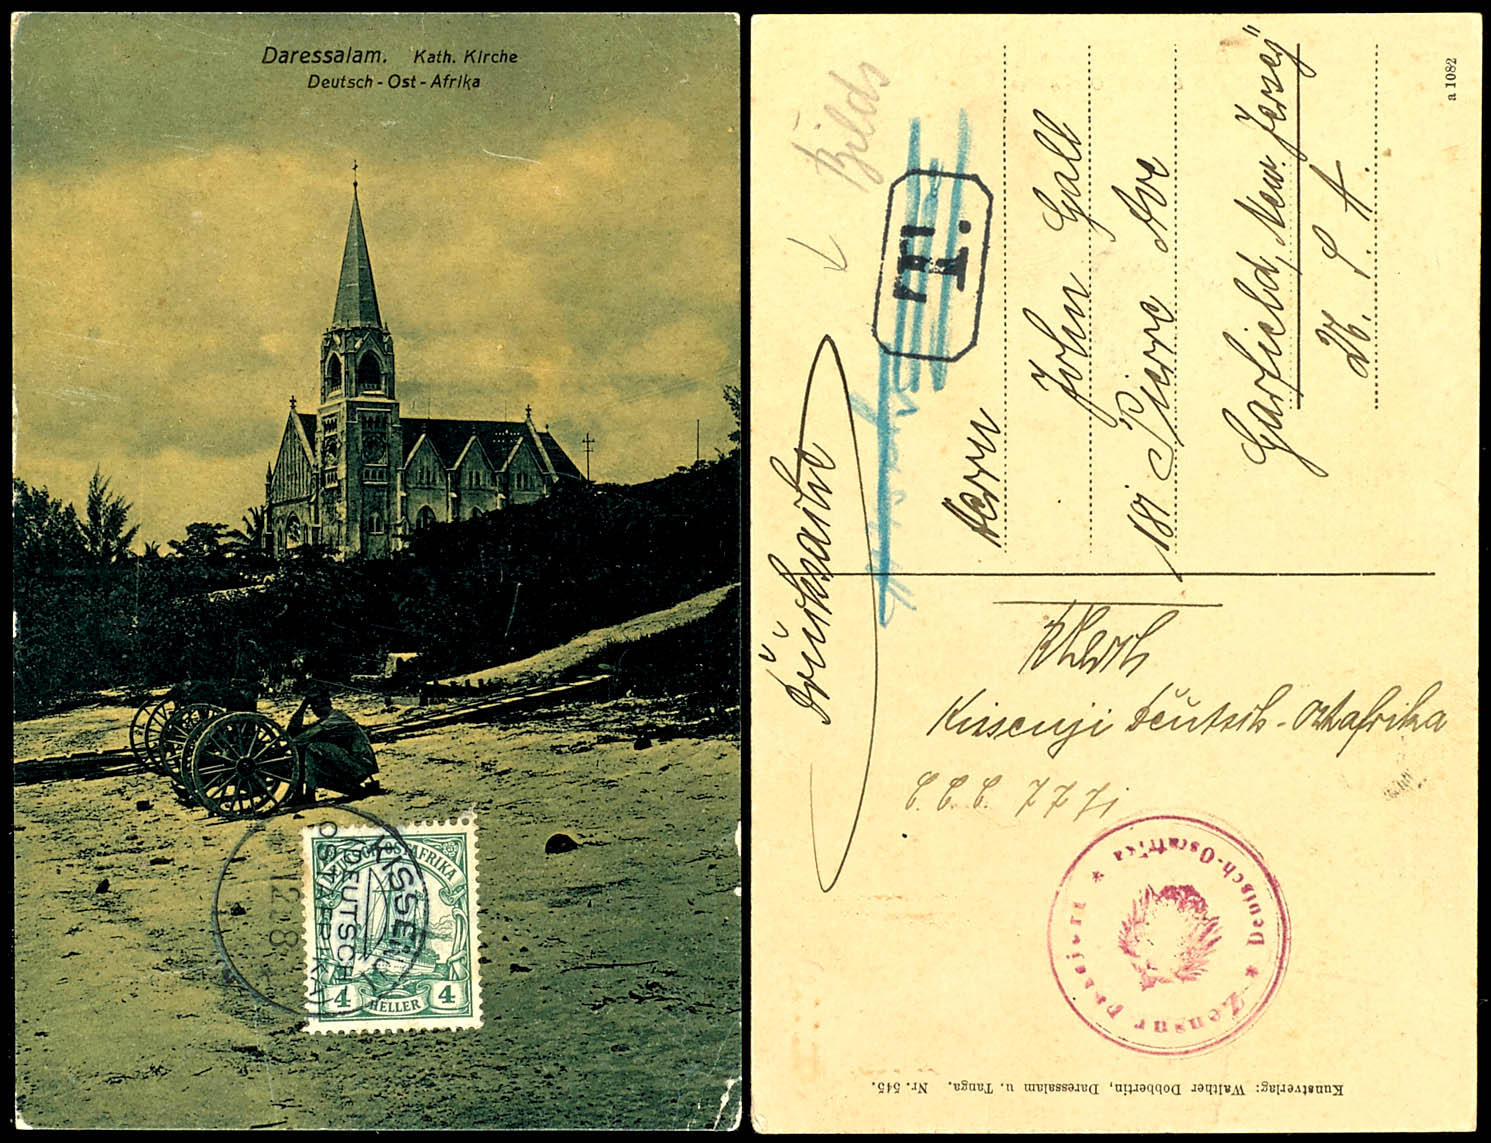 Daressalam. Kath. Kirche
Deutsch-Ost-Afrika
DEUTSCH-OSTAFRIKA
4 HELLER 4
KISSENJI
(DEUTSCH-
OSTAFRIKA)
12 8
Bilds
T.
Drucksache
Herrn
John Gall
181 Pierre Ave
Garfield, New. Jersey
U. S. A.
Kissenji Deutsch-Ostafrika
C.C.C. 777j
* Zensur passiert * Deutsch-Ostafrika
Kunstverlag: Walther Dobbertin, Daressalam u. Tanga. Nr. 545.
a 1082